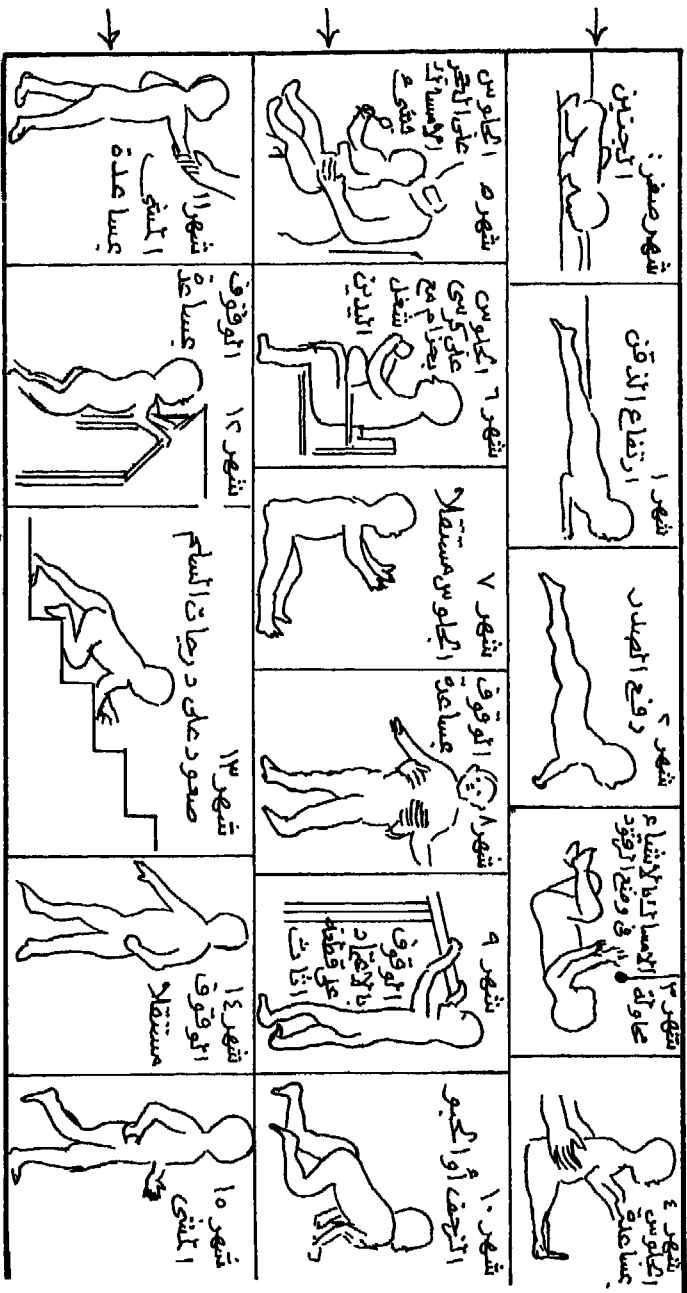 شهر صفر :
الجنين
شهر ١
ارتفاع الذقن
شهر ٢
رفع الصدر
شهر ٣
محاولة الامساك بالاشياء
فى وضع الرقود
شهر ٤
الجلوس
بمساعدة
شهر ٥
الجلوس
على الحجر
الامساك
بشىء
شهر ٦
الجلوس
على كرسى
بحزام مع
شغل
اليدين
شهر ٧
الجلوس مستقلا
شهر ٨
الوقوف
بمساعدة
شهر ٩
الوقوف
بالاعتماد
على قطعة
اثاث
شهر ١٠
الزحف أو الحبو
شهر ١١
المشى
بمساعدة
شهر ١٢
الوقوف
بمساعدة
شهر ١٣
صعود على درجات السلم
شهر ١٤
الوقوف
مستقلا
شهر ١٥
المشى